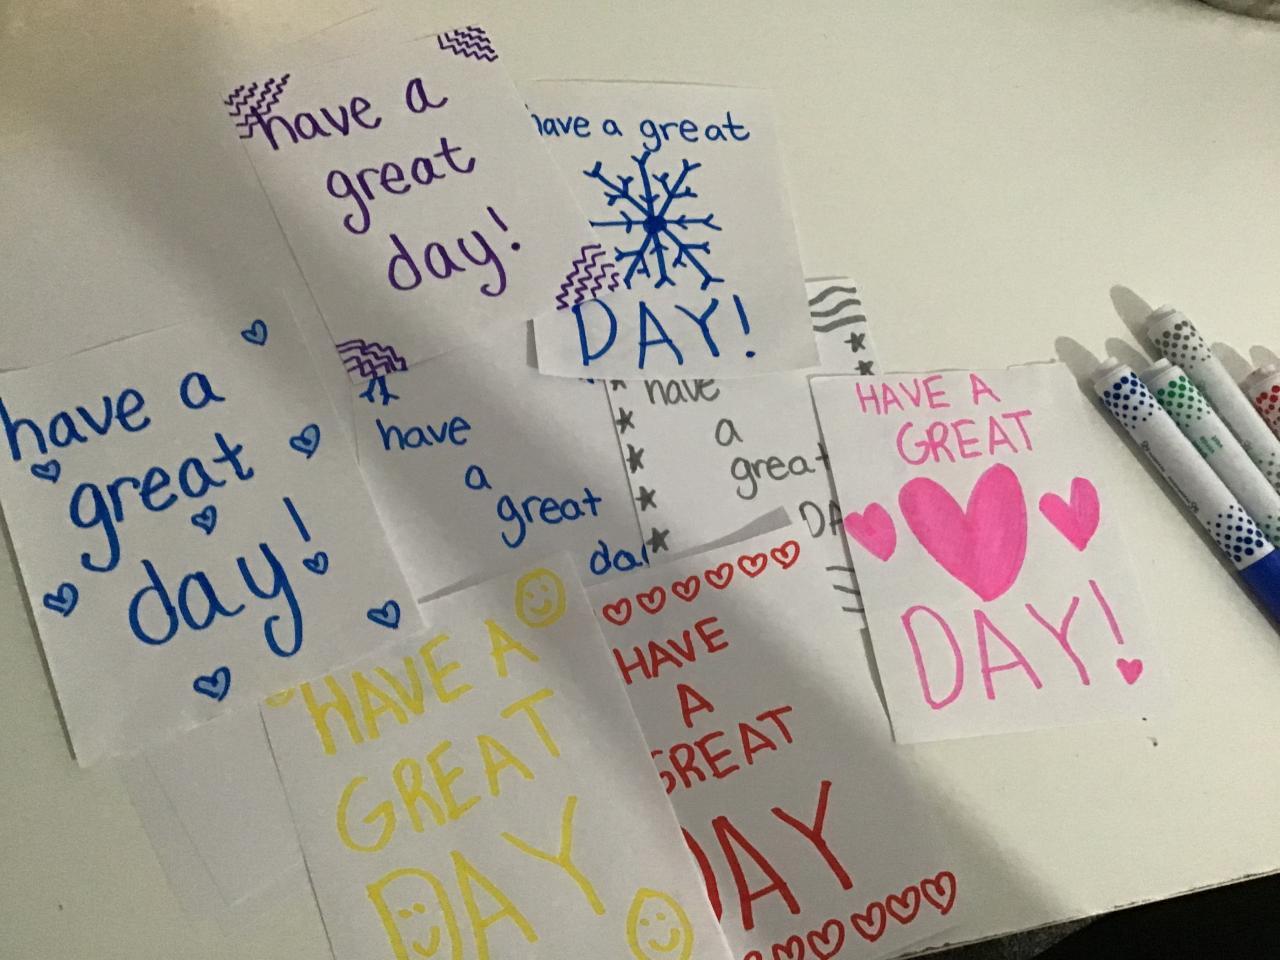 have a
great
day!
have a great
DAY!
have a
great
day!
have
a
great
have
a
great
HAVE A
GREAT
DAY!
HAVE A
GREAT
DAY
HAVE
A
GREAT
DAY